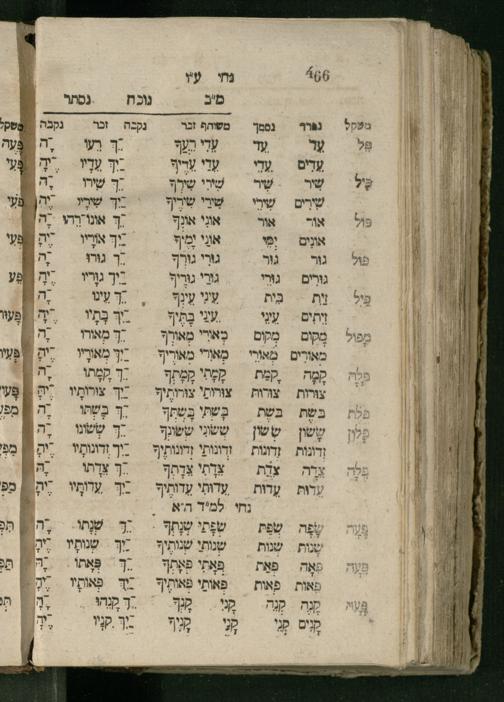 466 נחי ע״ו
מ״ב נוכח נסתר
משקל נפרד נסמך משותף זכר נקבה זכר נקבה
פל עד עד עדי רעך ־ך רעו ־ה
עדים עדי עדי עדיך ־יך עדיו ־יה
פיל שיר שיר שירי שירך ־ך שירו ־ה
שירים שירי שירי שיריך ־יך שיריו ־יה
פול אור אור אוני אונך
אונים ימי
פול גור גור גורי גורך ־ך גורו ־ה
גורים גורי גורי גוריך ־יך גוריו ־יה
פיל זית בית עיני עינך ־ך עינו ־ה
זיתים עיני עיני בתיך ־יך בתיו ־יה
מפול מקום מקום מאורי מאורך ־ך מאורו ־ה
מאורים מאורי מאורי מאוריך ־יך מאוריו ־יה
פלה קמה קמת קמתי קמתך ־ך קמתו ־ה
צורות צורות צורותי צורותיך ־יך צורותיו ־יה
פלת בשת בשת בשתי בשתך ־ך בשתו ־ה
פלון ששון ששון ששוני ששונך ־ך ששונו ־ה
זדונות זדונות זדונותי זדונותיך ־יך זדונותיו ־יה
פלה צדה צדת צדתי צדתך ־ך צדתו ־ה
עדות עדות עדותי עדותיך ־יך עדותיו ־יה
נחי למ״ד ה״א
פעה שפה שפת שפתי שנתך ־ך שנתו ־ה
שנות שנות שנותי שנותיך ־יך שנותיו ־יה
פעה פאה פאת פאתי פאתך ־ך פאתו ־ה
פאות פאות פאותי פאותיך ־יך פאותיו ־יה
פעה קנה קנה קני קנך ־ך קנהו ־ה
קנים קני קני קניך ־יך קניו ־יה